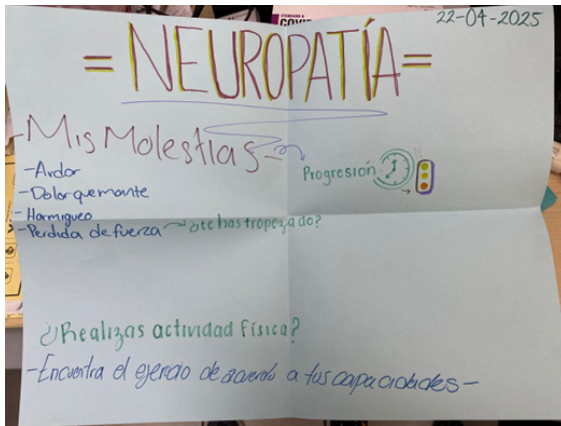 22-04-2025
= NEUROPATÍA =
- Mis Molestias -
Progresión
- Ardor
- Dolor quemante
- Hormigueo
- Perdida de fuerza → ¿te has tropezado?
¿Realizas actividad física?
- Encuentra el ejercio de acuerdo a tus capacidades -